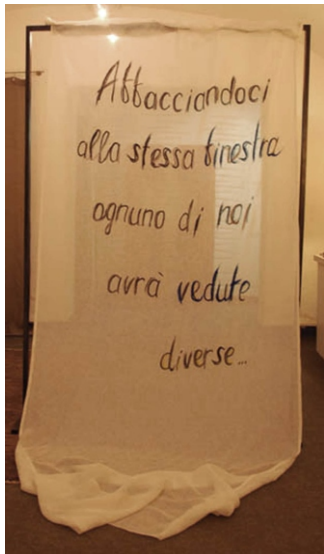 Affacciandoci
alla stessa finestra
ognuno di noi
avrà vedute
diverse...